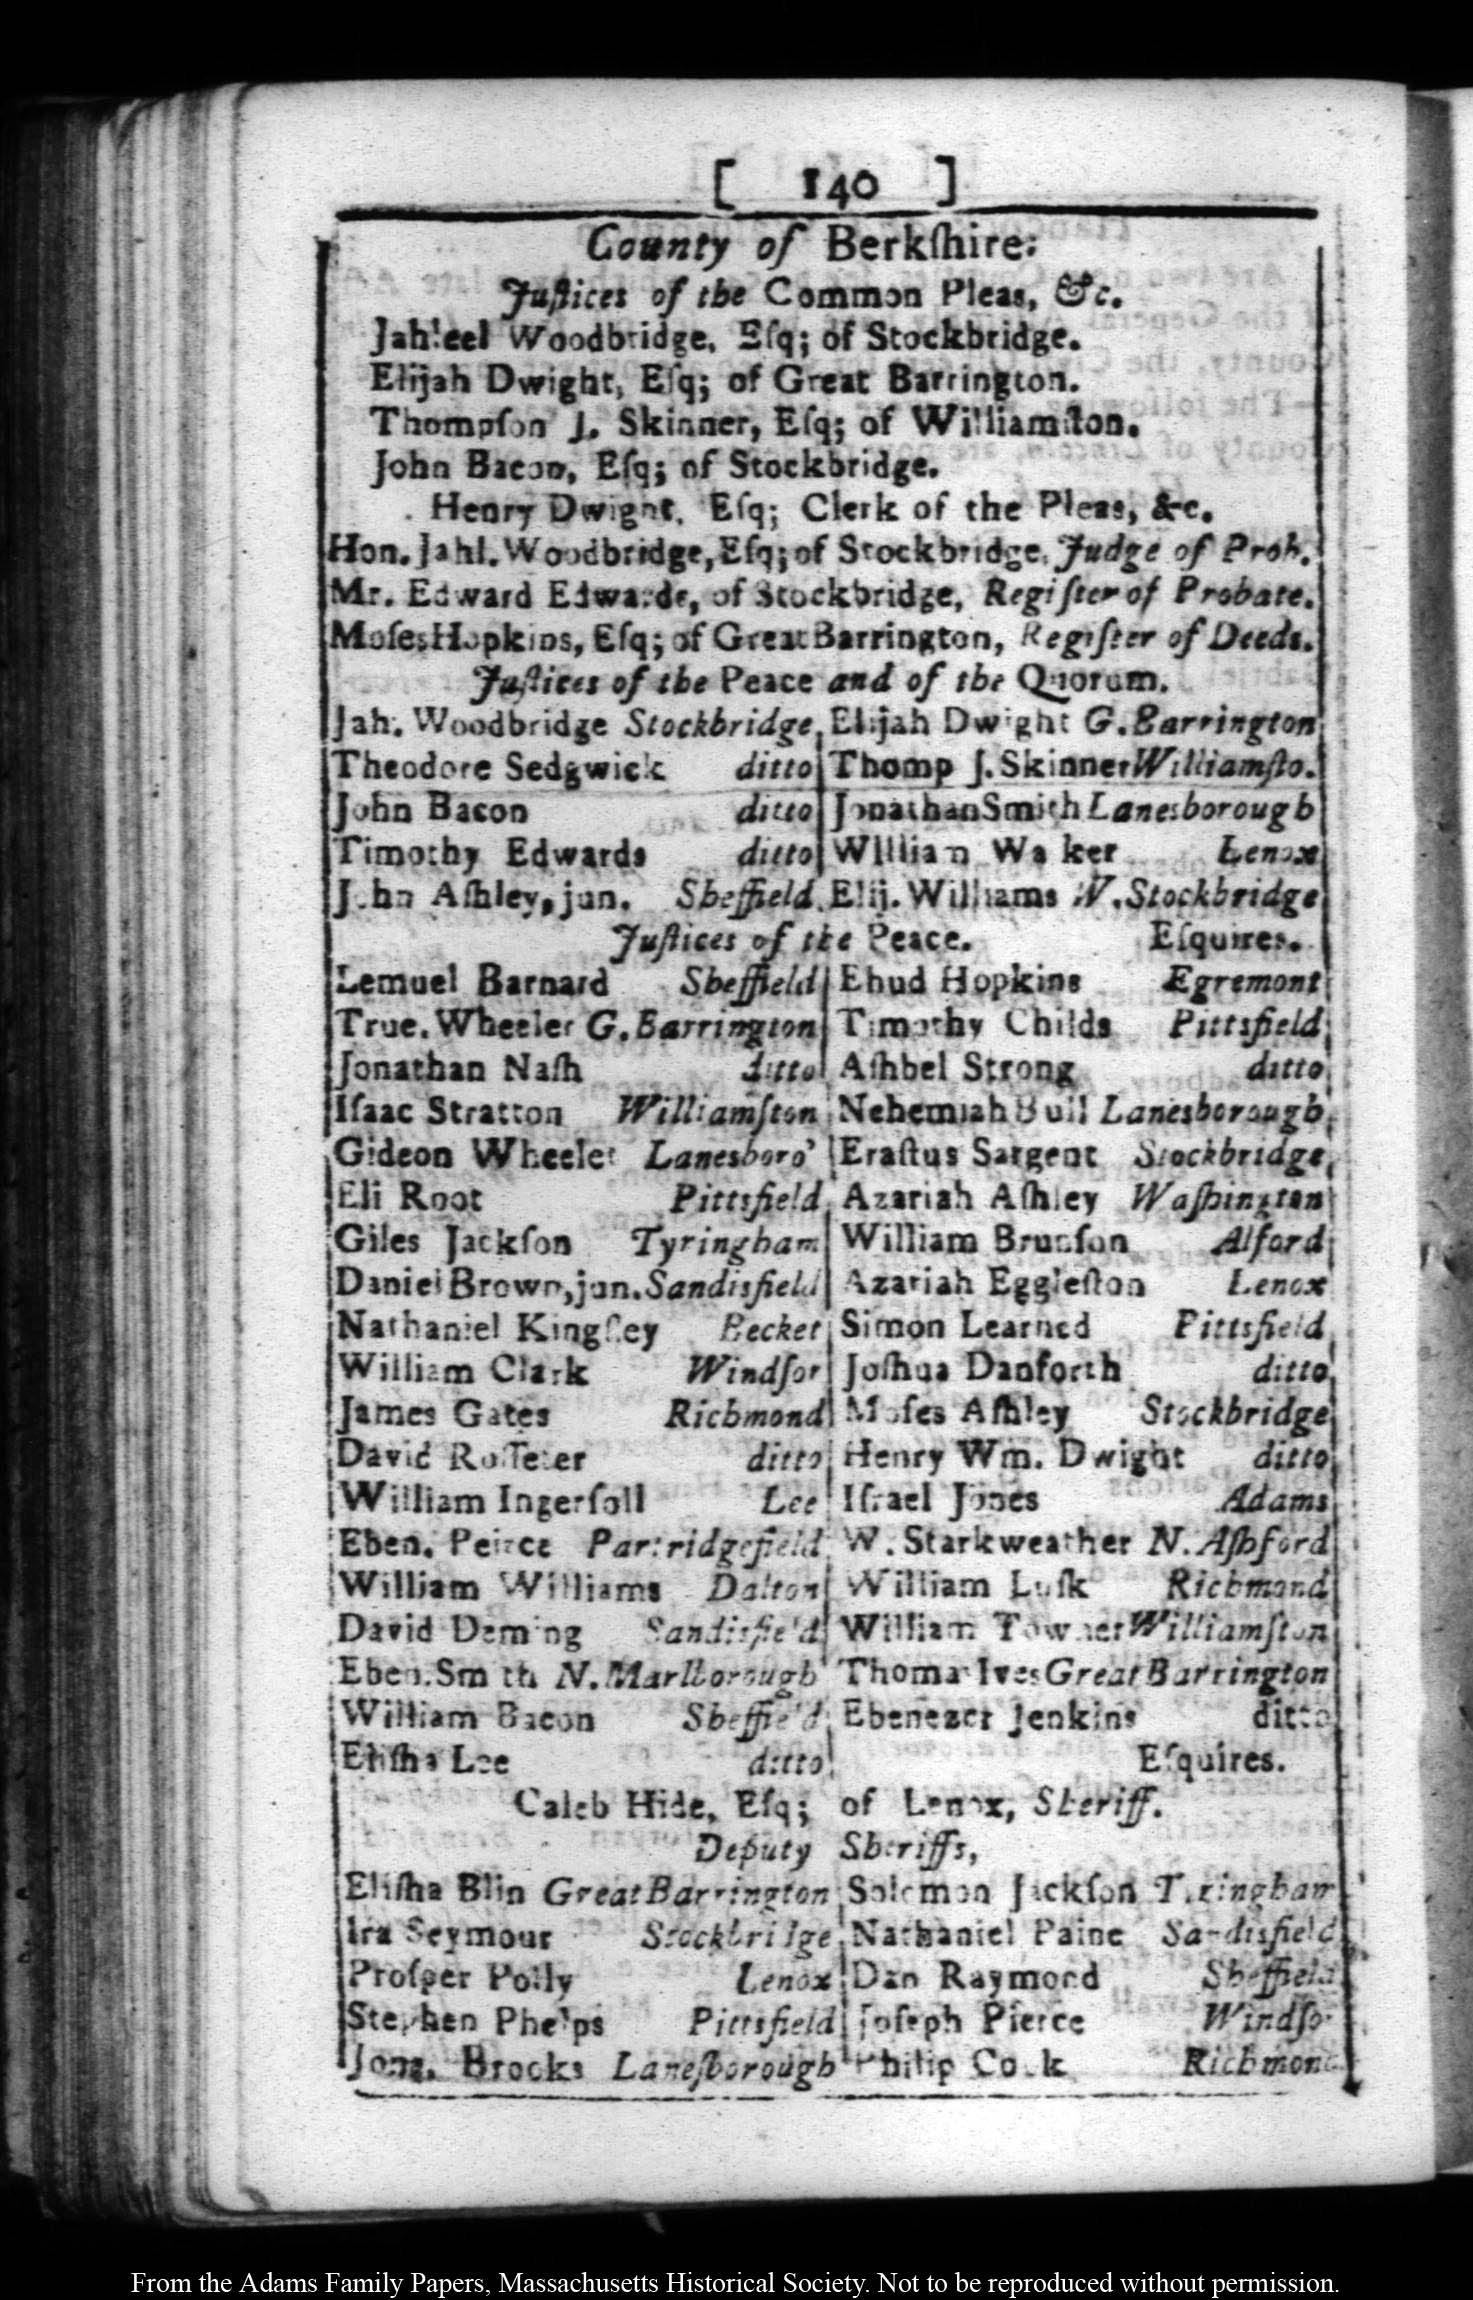 [ 140 ]
County of Berkſhire:
Juſtices of the Common Pleas, &c.
Jahleel Woodbridge, Eſq; of Stockbridge.
Elijah Dwight, Eſq; of Great Barrington.
Thompſon J. Skinner, Eſq; of Williamſton.
John Bacon, Eſq; of Stockbridge.
Henry Dwight, Eſq; Clerk of the Pleas, &c.
Hon. Jahl. Woodbridge, Eſq; of Stockbridge, Judge of Prob.
Mr. Edward Edwards, of Stockbridge, Regiſter of Probate.
Moſes Hopkins, Eſq; of Great Barrington, Regiſter of Deeds.
Juſtices of the Peace and of the Quorum.
Jah. Woodbridge Stockbridge, Elijah Dwight G. Barrington
Theodore Sedgwick ditto Thomp J. Skinner Williamſto.
John Bacon ditto Jonathan Smith Lanesborough
Timothy Edwards ditto William Walker Lenox
John Aſhley, jun. Sheffield, Elij. Williams W. Stockbridge
Juſtices of the Peace. Eſquires.
Lemuel Barnard Sheffield Ehud Hopkins Egremont
True. Wheeler G. Barrington Timothy Childs Pittsfield
Jonathan Naſh ditto Aſhbel Strong ditto
Iſaac Stratton Williamſton Nehemiah Bull Lanesborough
Gideon Wheeler Lanesboro' Eraſtus Sargent Stockbridge
Eli Root Pittsfield Azariah Aſhley Waſhington
Giles Jackſon Tyringham William Brunſon Alford
Daniel Brown, jun. Sandisfield Azariah Eggleſton Lenox
Nathaniel Kingſley Becket Simon Learned Pittsfield
William Clark Windſor Joſhua Danforth ditto
James Gates Richmond Moſes Aſhley Stockbridge
David Roſſeter ditto Henry Wm. Dwight ditto
William Ingerſoll Lee Iſrael Jones Adams
Eben. Peirce Partridgefield W. Starkweather N. Aſhford
William Williams Dalton William Luſk Richmond
David Deming Sandisfield William Towner Williamſton
Eben. Smith N. Marlborough Thomas Ives Great Barrington
William Bacon Sheffield Ebenezer Jenkins ditto
Eliſha Lee ditto Eſquires.
Caleb Hide, Eſq; of Lenox, Sheriff.
Deputy Sheriffs,
Eliſha Blin Great Barrington Solomon Jackſon Tyringham
Ira Seymour Stockbridge Nathaniel Paine Sandisfield
Proſper Polly Lenox Dan Raymond Sheffield
Stephen Phelps Pittsfield Joſeph Pierce Windſor
Jona. Brooks Laneſborough Philip Cook Richmond
From the Adams Family Papers, Massachusetts Historical Society. Not to be reproduced without permission.